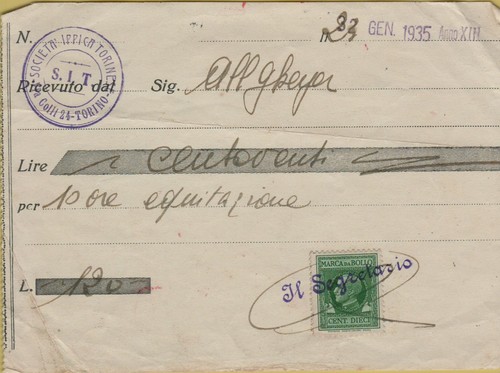 N. 23 GEN. 1935 Anno XIII
SOCIETA' IPPICA TORINESE
S. I. T.
C. Galli-24-TORINO
Ricevuto dal Sig.
Lire centoventi
per 10 ore equitazione
MARCA DA BOLLO
Il Segretario
L. 120
CENT. DIECI